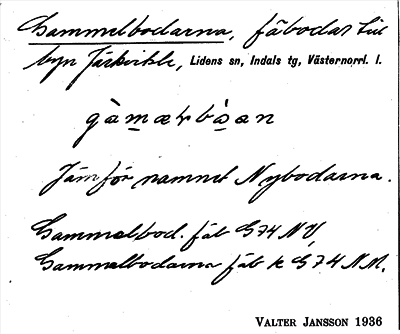 Gammelbodarna, fäbodar till
byn Järkvitsle, Lidens sn, Indals tg, Västernorrl. l.
gàmærbòan
Jämför namnet Nybodarna.
Gammelbod. fäb G74 NV,
Gammelbodarna fäb k G74 NM.
VALTER JANSSON 1936